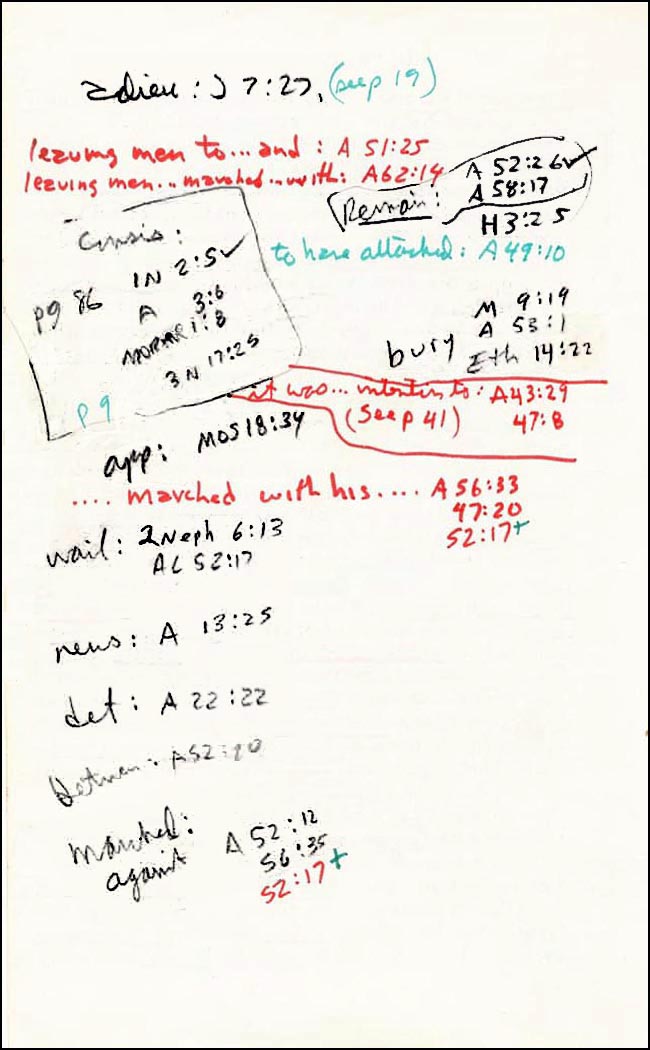 adieu: J 7:27, (see p 19)
leaving men to... and : A 51:25
leaving men... marched... with: A62:14
Remain: A 52:26✓
A 58:17
H3:25
to have attacked: A49:10
Consis:
pg 86 1N 2:5✓
A 3:6
MORMAR 1:8
3N 17:25
p 9
M 9:19
bury A 53:1
Eth 14:22
it was... intention to: A43:29
(See p 41) 47:8
app: MOS 18:34
.... marched with his.... A 56:33
47:20
52:17+
wail: 2Neph 6:13
AL 52:17
news: A 13:25
det: A 22:22
A52:20
marched: A 52:12
against 56:35
52:17+